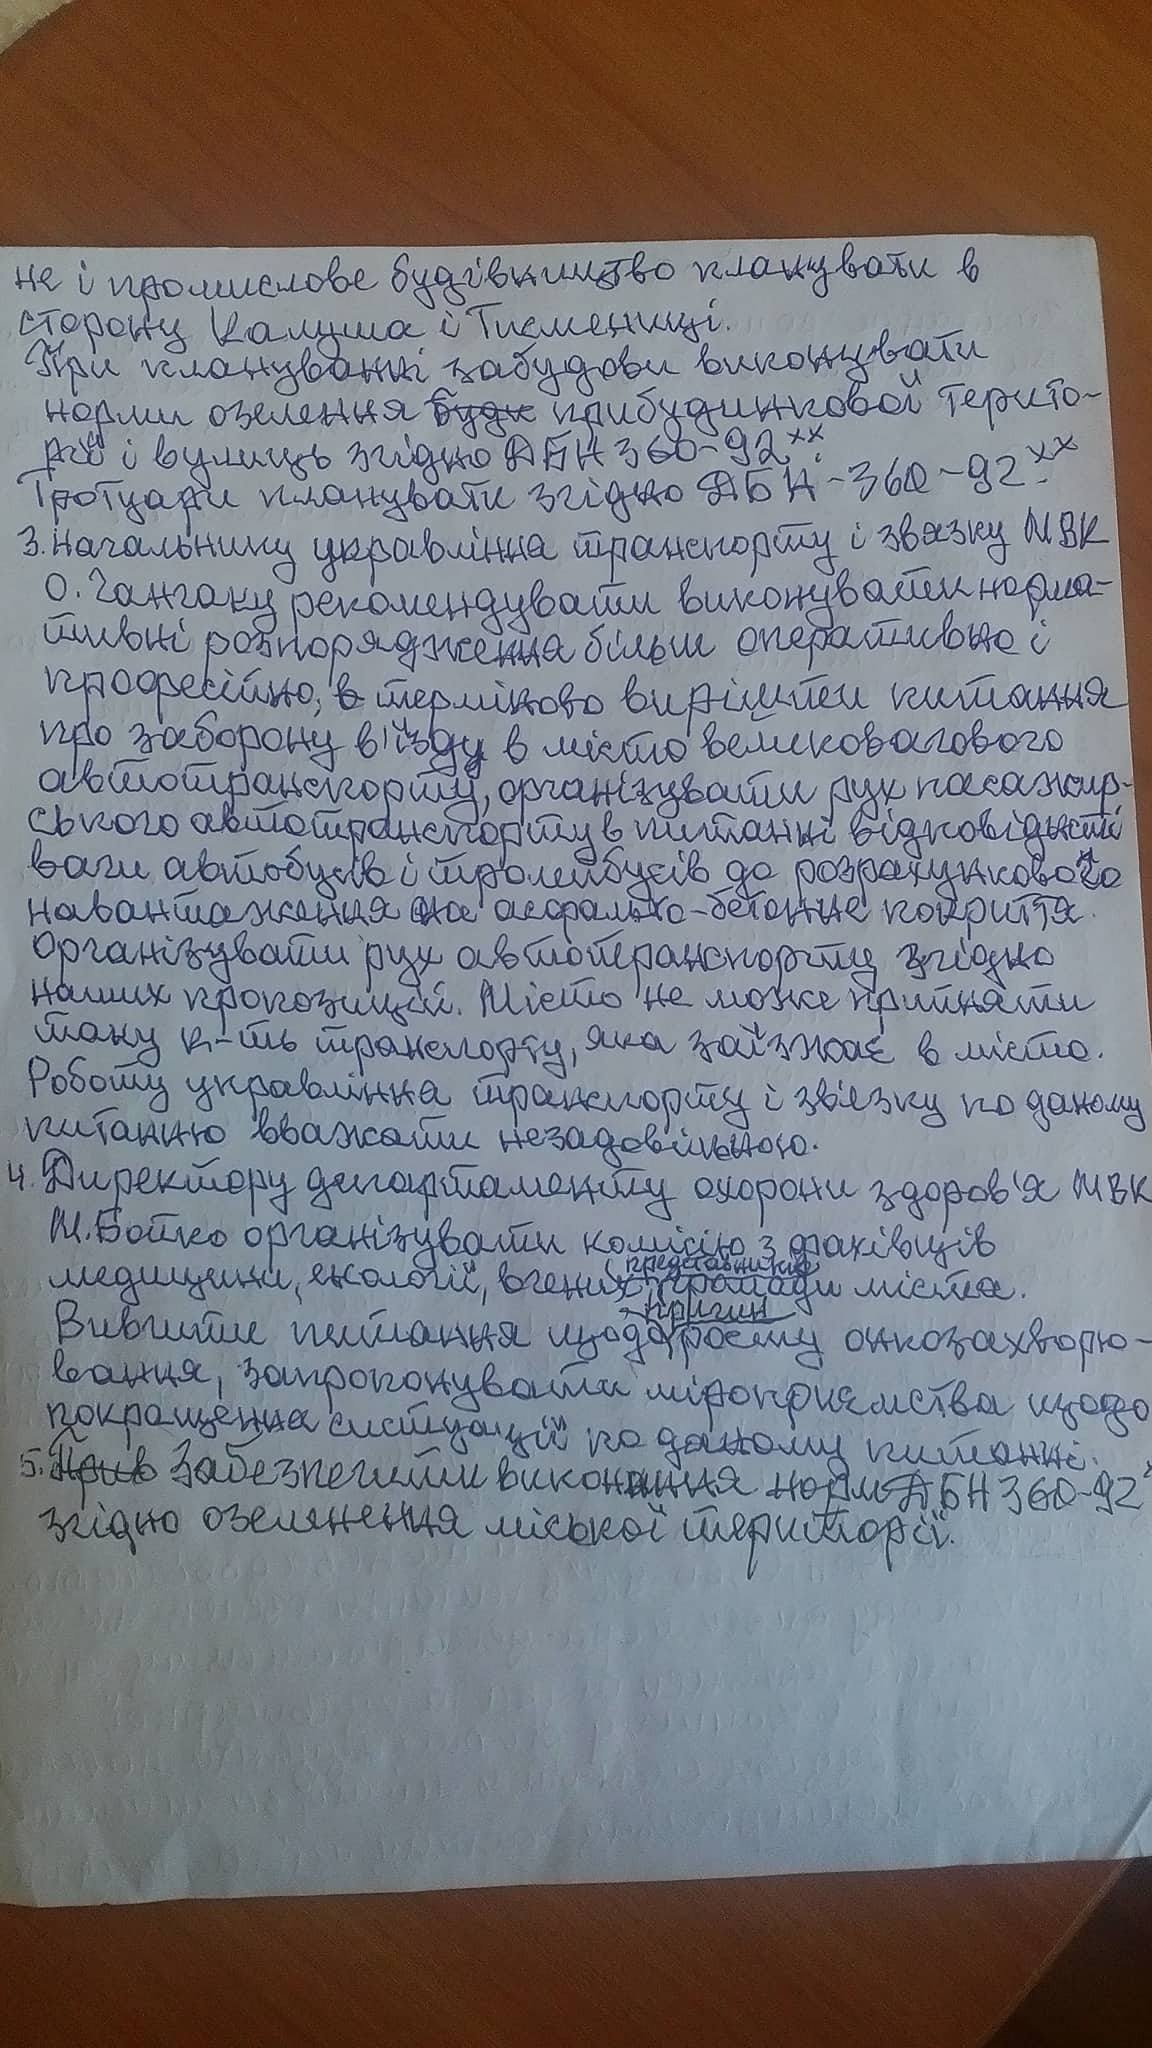 не і промислове будівництво планувати в
сторону Калуша і Тисмениці.
При плануванні забудови виконувати
норми озелення буди прибудинкової терито-
рії і вулиць згідно ДБН 360-92**.
Тротуари планувати згідно ДБН-360-92.**
3. Начальнику управління транспорту і звязку МВК
О. Ганчаку рекомендувати виконувати норма-
тивні розпорядження більш оперативно і
професійно, в терміново вирішити питання
про заборону в'їзду в місто великовагового
автотранспорту, організувати рух пасажир-
ського автотранспорту в питанні відповідності
ваги автобусів і тролейбусів до розрахункового
навантаження на асфальто-бетонне покриття.
Організувати рух автотранспорту згідно
наших пропозицій. Місто не може прийняти
таку к-ть транспорту, яка заїзжає в місто.
Роботу управління транспорту і зв'язку по даному
питанню вважати незадовільною.
4. Директору департаменту охорони здоров'я МВК
М. Бойко організувати комісію з фахівців
представників
медицини, екології, вчених, громади міста.
причин
Вивчити питання щодо росту онкозахворю-
вання, запропонувати міроприємства щодо
покращення ситуації по даному питанні.
5. Прив Забезпечити виконання норм ДБН 360-92*
згідно озеленення міської території.